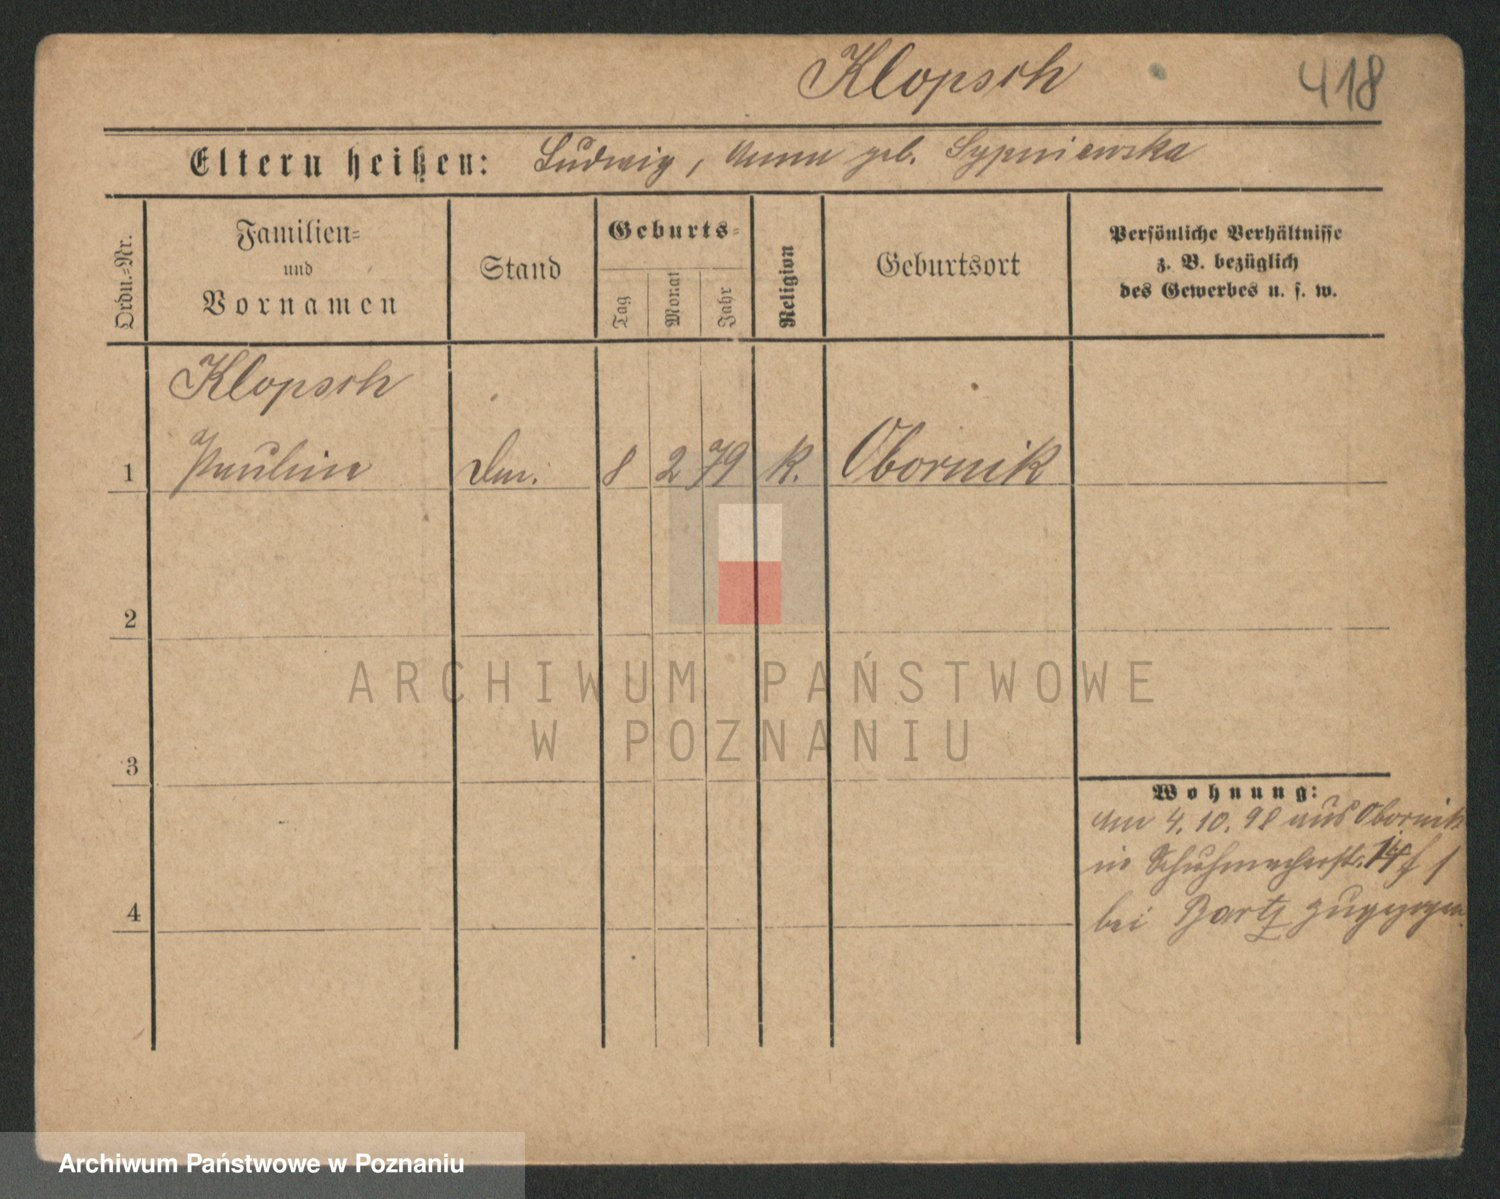 Klopsch
418
Eltern heißen: Ludwig, Anna geb. Sypniewska
Ordn.=Nr.
Familien=
und
Vornamen
Stand
Geburts=
Tag
Monat
Jahr
Religion
Geburtsort
Persönliche Verhältnisse
z. B. bezüglich
des Gewerbes u. s. w.
Klopsch
1 Pauline 8 2 79 K. Obornik
2
3
4
Wohnung:
Am 4. 10. 98 aus Obornik
in Schuhmacherstr. 14
bei Bartz zugezogen.
ARCHIWUM PAŃSTWOWE
W POZNANIU
Archiwum Państwowe w Poznaniu